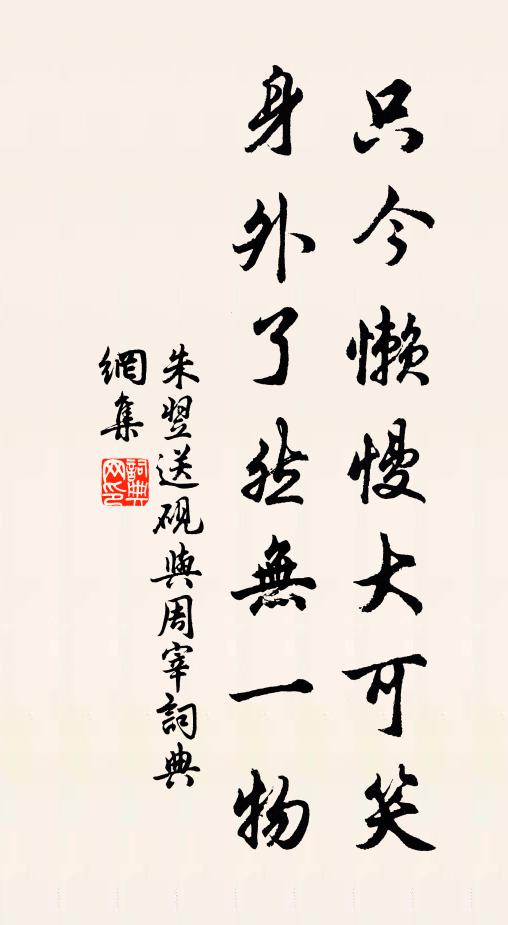 只今懶慢大可笑
身外了然無一物
朱翌送硯與周宰詞典
網集
詞典
网印